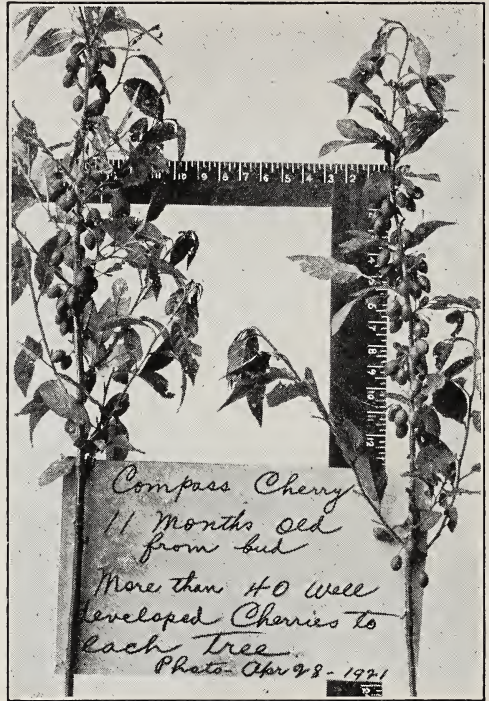 11 10 9 8 7 6 5 4 3 2
Compass Cherry
11 Months old
from bud
More than 40 well
developed Cherries to
each Tree
Photo - Apr 28 - 1921